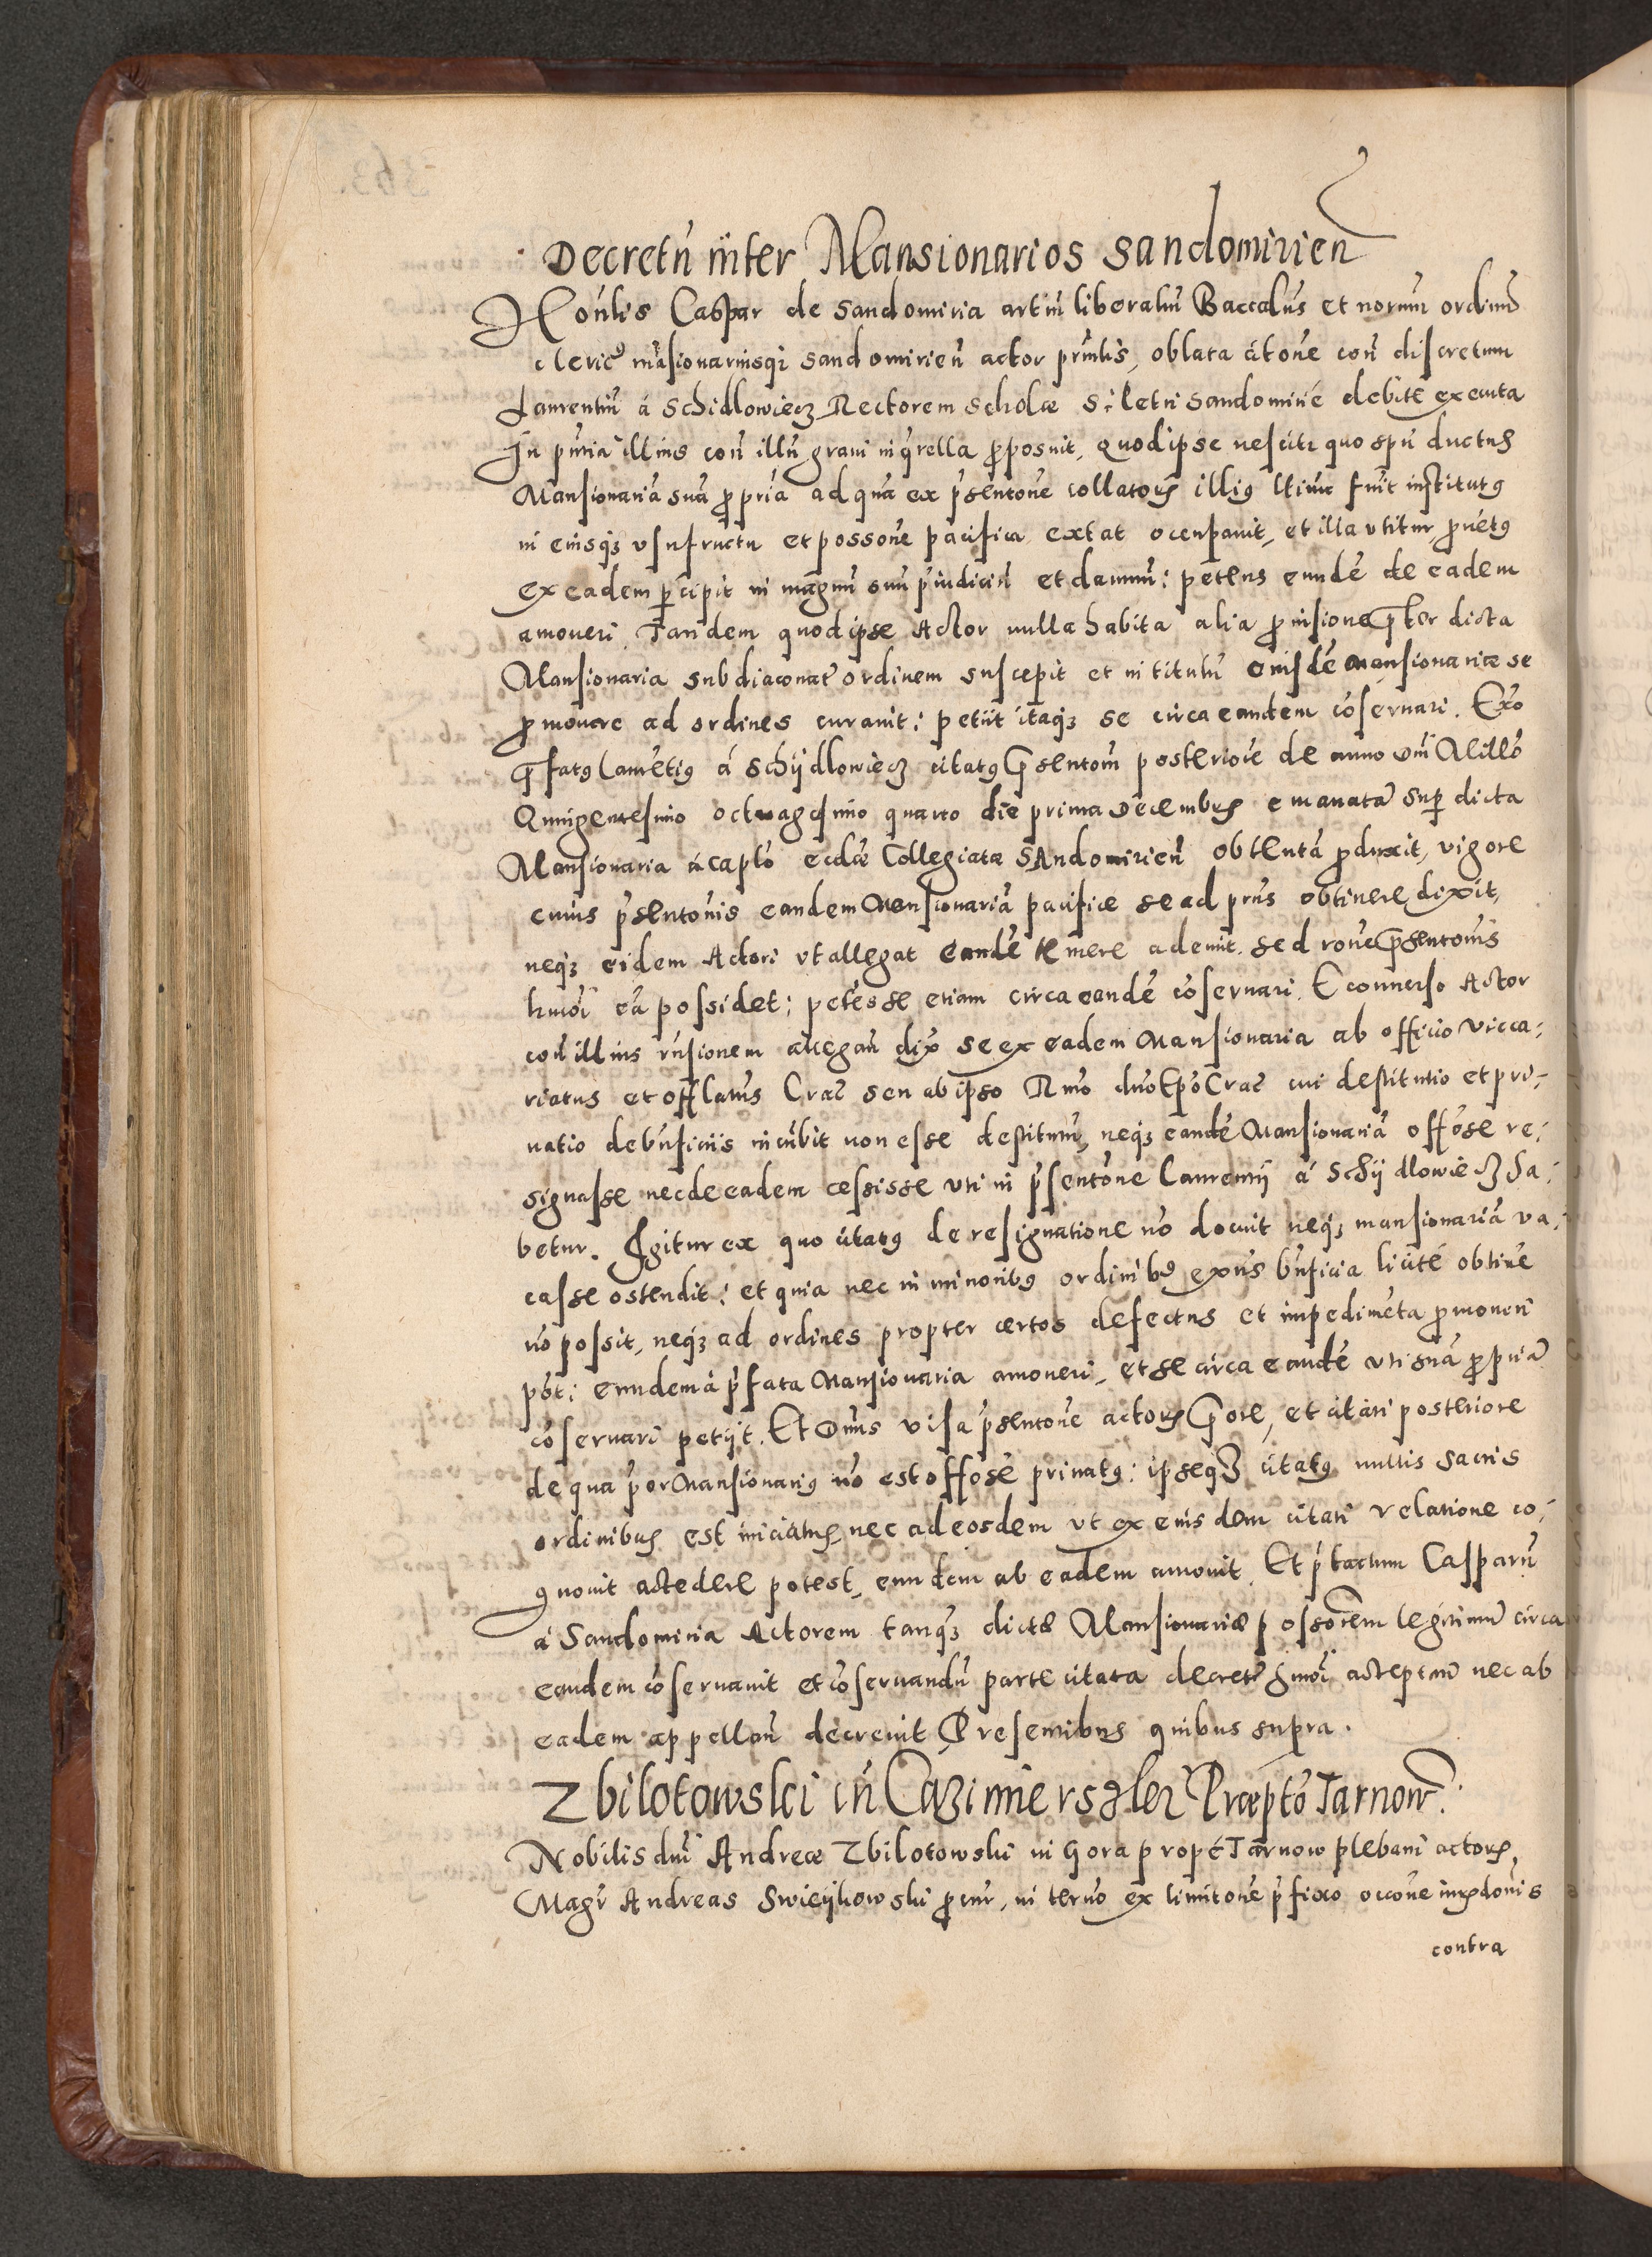 Decretũ inter Mansionarios Sandomirien̄
Honlis Caspar de Sandomiria artiũ liberaliũ Baccalus et norum ordinũ
cleric9 mãsionariusq3 Sandomirien̄ actor prñlis, oblata citõne con̄ discretum
Laurentiũ á Schidlowiecz Rectorem scholæ S: Petri Sandomirien̄ debite executa
In pñtia illius con̄ illũ graui in querella proposuit, Quod ipse nescit quo spũ ductus
Mansionariã suã propriã ad quã ex pñsentõne collatoris illi9 fuit institut9
in eiusq3 vsufructu et possone pacifica extat occupauit, et illa vtitur, prouet9
ex eadem percipit in magnũ suũ piudiciũ et damnũ: petens eundẽ de eadem
amoueri. Tandem quod ipse Actor nulla habita alia prouisione præter dicta
Mansionaria subdiaconat9 ordinem suscepit et in titulũ eiusdẽ mansionariæ se
promouere ad ordines curauit: petiit itaq3 se circa eandem cõseruari. Exo
præfat9 Laurẽti9 á Schijdlowiecz citat9 præsentõni posteriorẽ de anno dñi Millo
Quingentesimo octuagesimo quarto die prima Decembris emanatã super dicta
Mansionaria á caplo ecclæ Collegiatæ Sandomirien̄ obtentã produxit, vigore
cuius pñsentõnis eandem Mansionariã pacifice se ad prñs obtinere dixit,
neq3 eidem Actori vt allegat eandẽ temere ademit. sed rone præsentõnis
hmõi eã possidet: petẽs se etiam circa eandẽ cõseruari. Econuerso Actor
con̄ illius rũsionem allegan̄ dix̃ se ex eadem Mansionaria ab officio vica:
riatus et offlatus Crac̃ seu ab ipso Rmo dno Epo Crac̃ cui destitutio et pri:
uatio de bñficiis incũbit non esse destitutũ, neq3 eandẽ Mansionariã offõse re:
signasse nec de eadem cessisse vti in pñsentõne Laurentij á Schijdlowiecz ha:
betur. Igitur ex quo citat9 de resignatione nõ docuit neq3 mansionariã va:
casse ostendit: et quia nec in minorib9 ordinib9 exñs bñficia licitẽ obtinẽ
nõ possit, neq3 ad ordines propter certos defectus et impedimẽta promoueri
põt: eundem á pñfata Mansionaria amoueri, et se circa eandẽ vti suã propriã
cõseruari petijt. Et Dnus visa pñsentõne actoris priore, et citati posteriore
de qua prior Mansionari9 nõ est offõse priuat9: ipseq3 citat9 nullis sacris
ordinibus est iniciatus, nec ad eosdem vt ex eiusdem citati relatione co:
gnouit accedere potest, eundem ab eadem amouit. Et ptactum Casparũ
á Sandomiria Actorem tanq3 dictæ Mansionariæ possorem legitimũ circa
eandem cõseruauit et cõseruandũ parte citata decretũ hmõi acceptan̄ nec ab
eadem appellan̄ decreuit Præsentibus quibus supra.
Zbilotowski in Cazimierszki Præpto Tarnow̃:
Nobilis dni Andreæ Zbilotowski in Gora propé Tarnow plebani actoris,
Magr Andreas Swieijkowski procur, in terno ex limitõne pfixo occone impdonis
contra